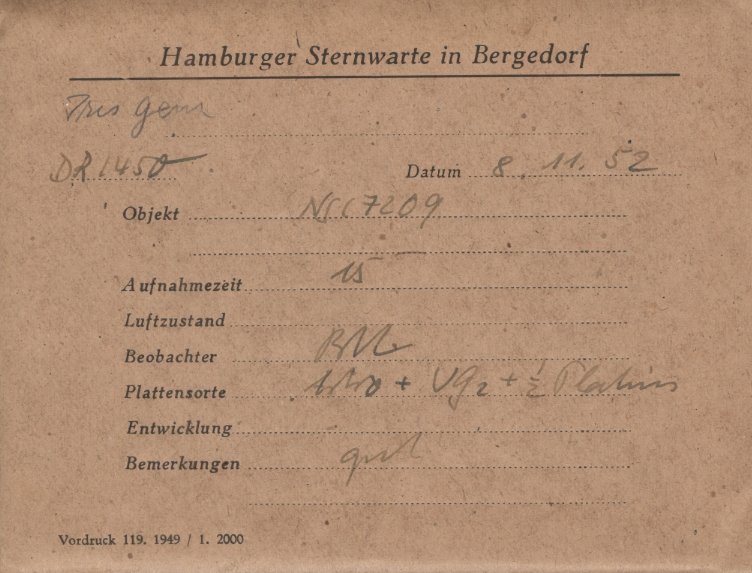 Hamburger Sternwarte in Bergedorf
DR 1450
Datum 8. 11. 52
Objekt NGC 7209
Aufnahmezeit 15
Luftzustand
Beobachter
Plattensorte + UG2 + ½ Platin
Entwicklung
Bemerkungen gut
Vordruck 119. 1949 / 1. 2000